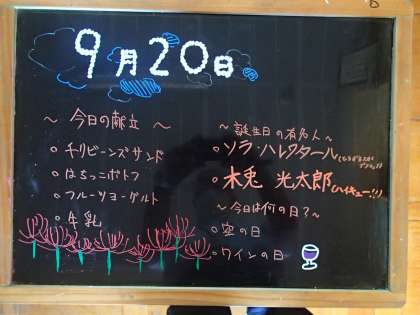 9月20日
～今日の献立～
○チリビーンズサンド
○はちっこポトフ
○フルーツヨーグルト
○牛乳
～誕生日の有名人～
○ソラ・ハレワタール
○木兎 光太郎(ハイキュー!!)
～今日は何の日？～
○空の日
○ワインの日